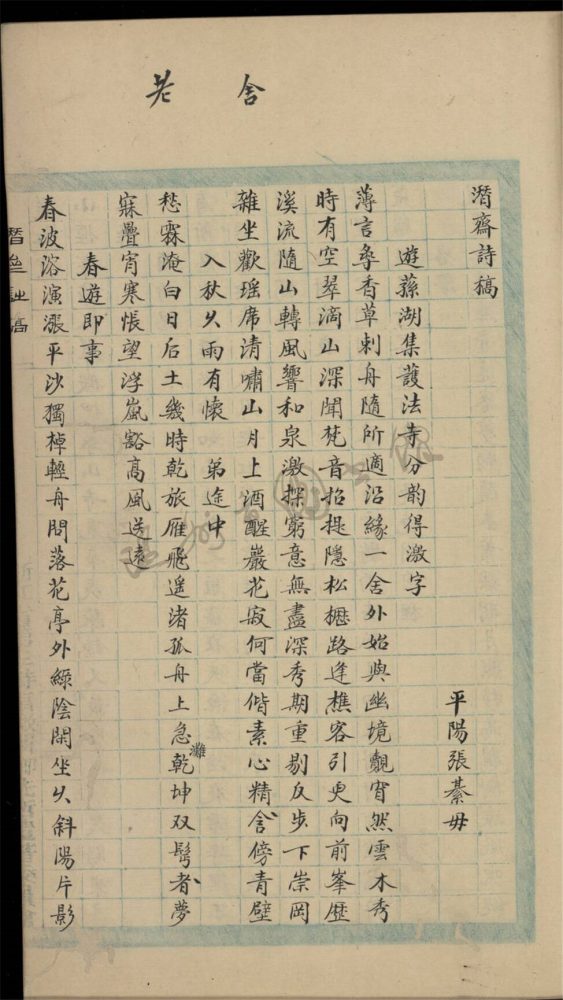 舍
老
潛齋詩稿
平陽張綦毋
遊蓀湖集護法寺分韵得激字
薄言搴香草刺舟隨所適沿緣一舍外始與幽境覿窅然雲木秀
時有空翠滴山深聞梵音招提隱松櫪路逢樵客引更向前峯歷
溪流隨山轉風響和泉激探窮意無盡深秀期重剔反步下崇岡
雜坐歡瑶席清嘯山月上酒醒巖花寂何當偕素心精舍傍青壁
入秋久雨有懷 弟途中
愁霖淹白日后土幾時乾旅雁飛遥渚孤舟上急灘乾坤双髩者夢
寐疊宵寒悵望浮嵐豁高風送遠
春遊即事
春波溶演漲平沙獨棹輕舟問落花亭外綠陰閑坐久斜陽片影